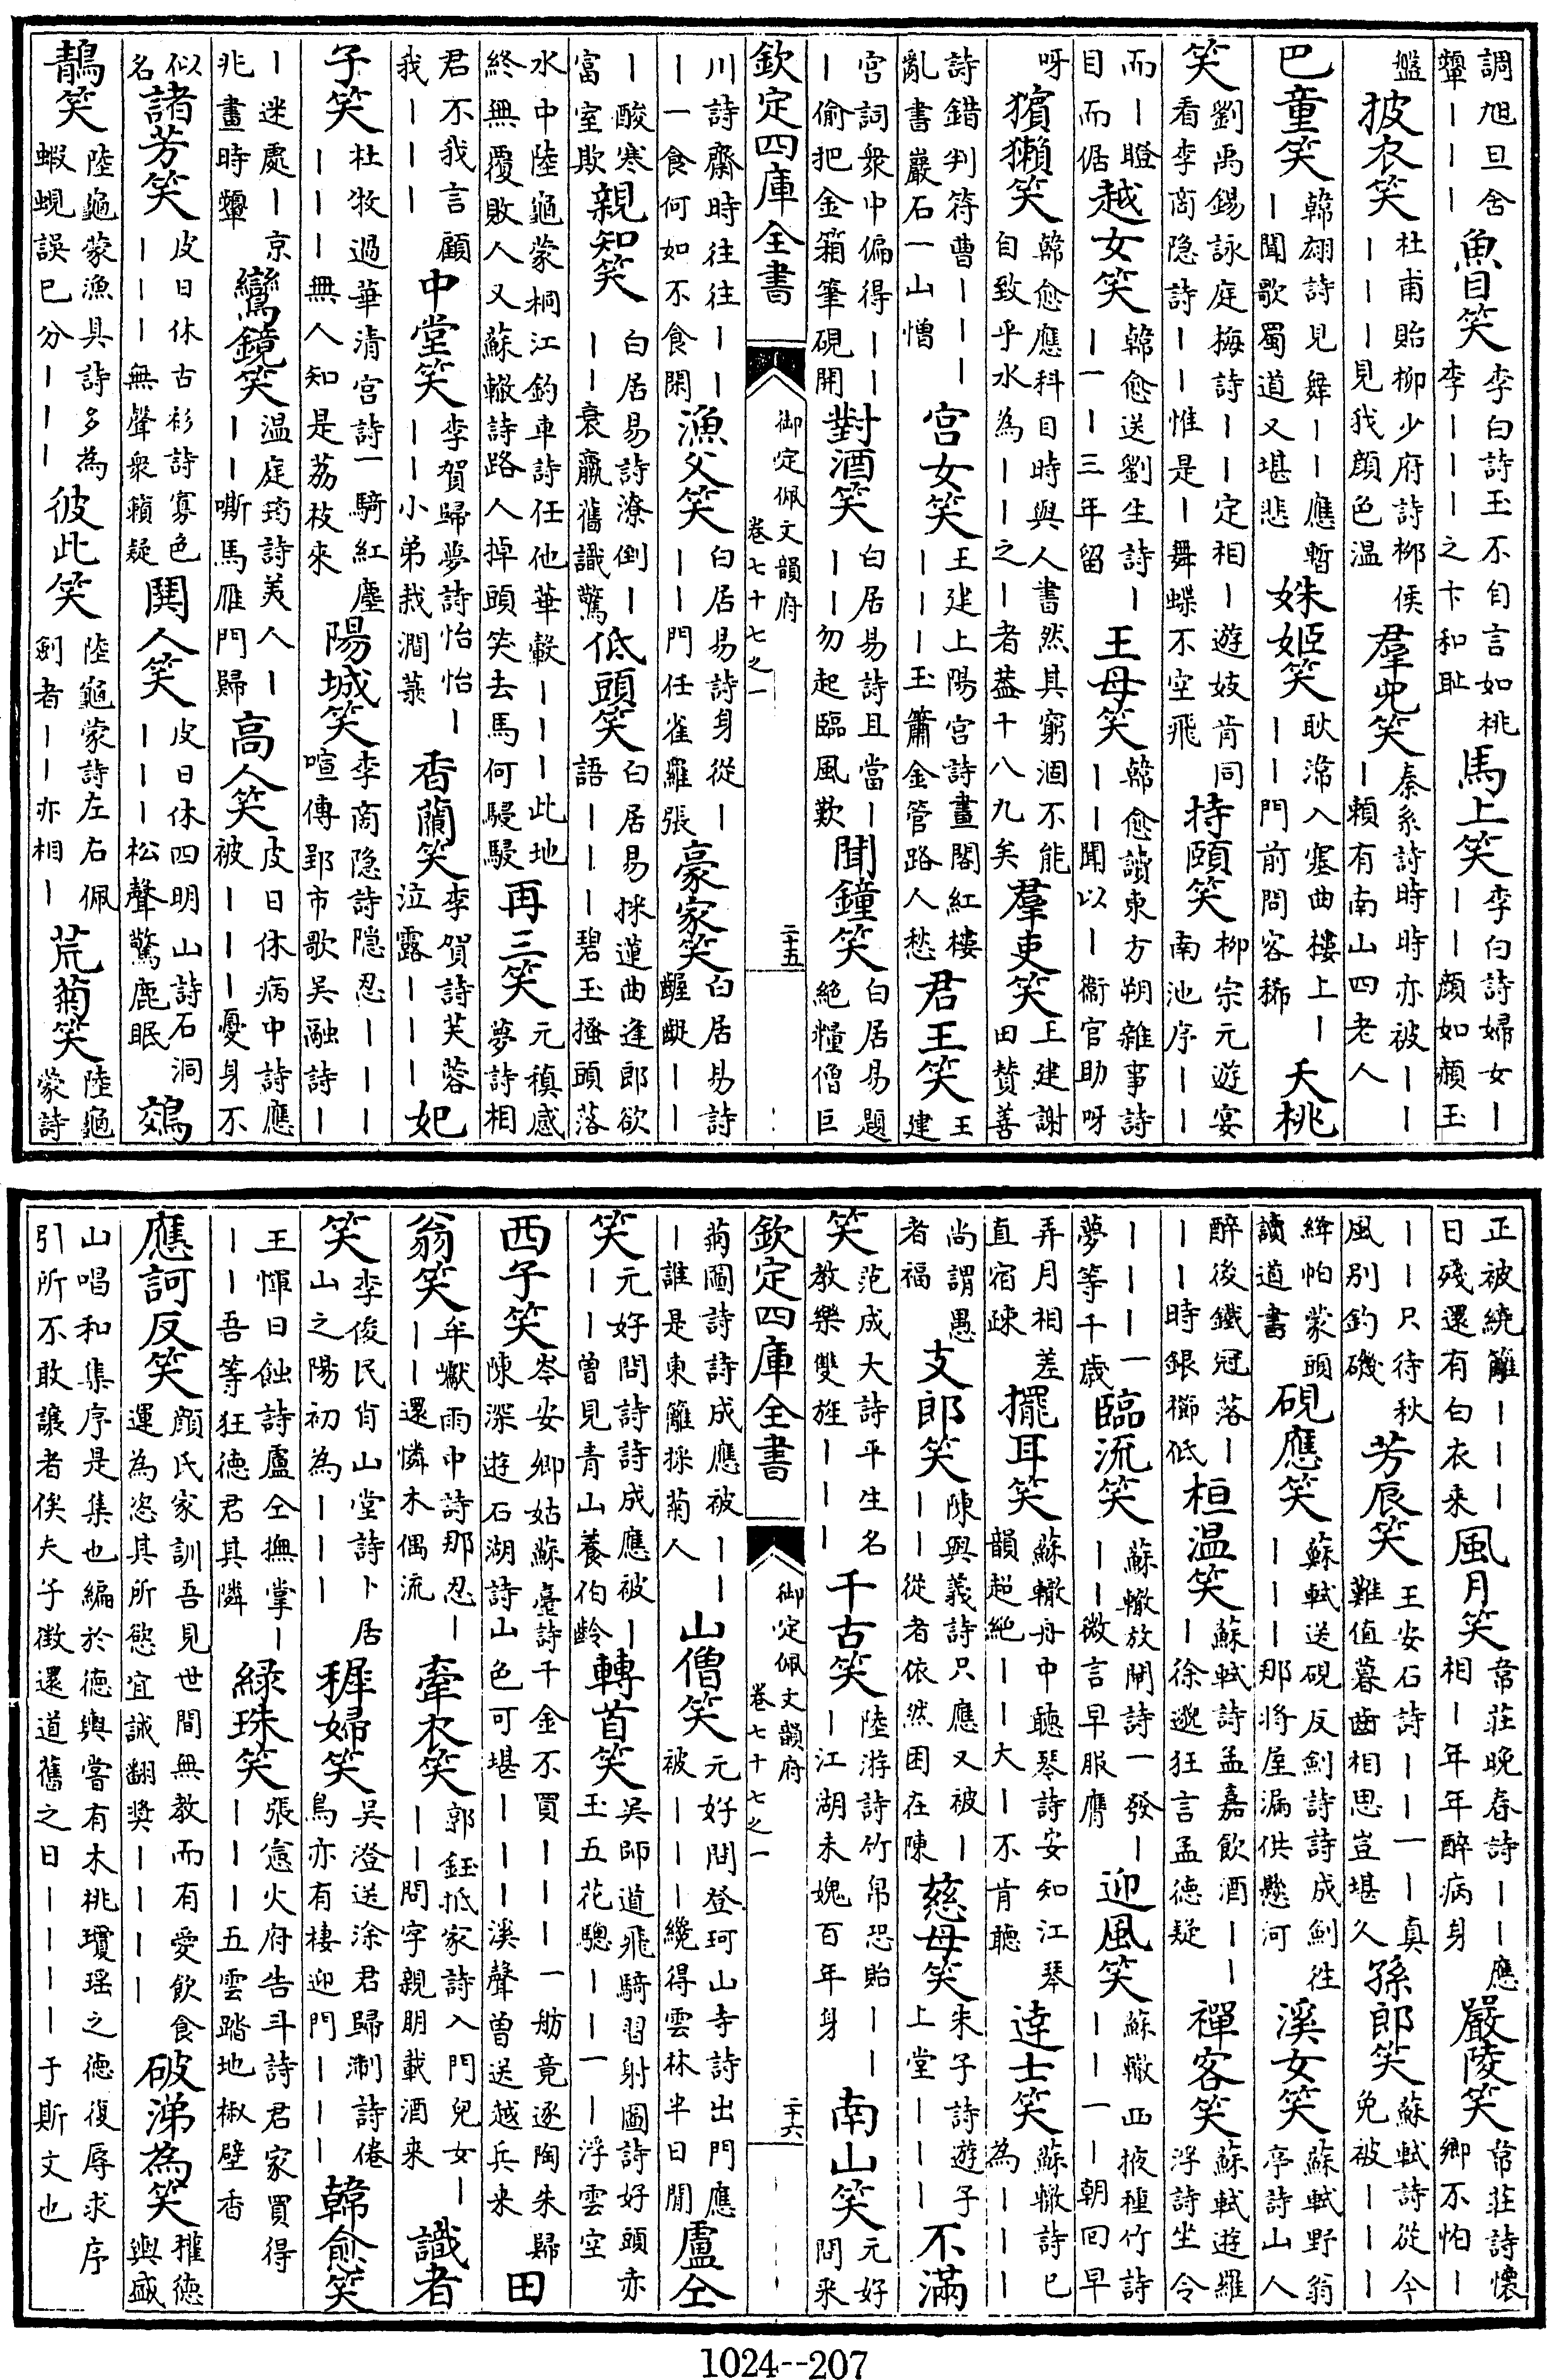 調旭旦舍顰｜｜｜魚目笑李白詩玉不自言如桃李｜｜｜之卞和耻馬上笑李白詩婦女｜｜｜顔如頳玉
盤披衣笑杜甫貽柳少府詩柳侯｜｜｜見我顔色温羣児笑秦系詩時時亦被｜｜｜頼有南山四老人
巴童笑韓翃詩見舞｜｜應暫｜聞歌蜀道又堪悲姝姬笑耿湋入塞曲樓上｜｜｜門前問客稀夭桃
笑劉禹錫詠庭梅詩｜｜定相｜遊妓肯同看李商隐詩｜｜惟是｜舞蝶不空飛持頤笑柳宗元遊宴南池序｜｜
而｜瞪目而倨越女笑韓愈送劉生詩｜｜一｜三年留王母笑韓愈讀東方朔雜事詩｜｜聞以｜衛官助呀
呀獱獺笑韓愈應科目時與人書然其窮涸不能自致乎水為｜｜之｜者葢十八九矣羣吏笑王建謝田賛善
詩錯判符曹｜｜｜亂書巖石一山憎宫女笑王建上陽宫詩畫閣紅樓｜｜｜玉簫金管路人愁君王笑王建
宫詞衆中偏得｜｜｜偷把金箱筆硯開對酒笑白居易詩且當｜｜｜勿起臨風歎聞鐘笑白居易題絶糧僧巨
欽定四庫全書 御定佩文韻府 卷七十七之一 二十五
川詩齋時往往｜｜｜一食何如不食閑漁父笑白居易詩身從｜｜｜門任雀羅張豪家笑白居易詩齷齪｜｜
｜酸寒富室欺親知笑白居易詩潦倒｜｜｜衰羸舊識驚低頭笑白居易採蓮曲逢郎欲語｜｜｜碧玉搔頭落
水中陸龜蒙桐江釣車詩任他華轂｜｜｜此地終無覆敗人又蘇轍詩路人掉頭笑去馬何駸駸再三笑元稹感夢詩相
君不我言顧我｜｜｜中堂笑李賀歸夢詩怡怡｜｜｜小弟栽澗菉香蘭笑李賀詩芙蓉泣露｜｜｜妃
子笑杜牧過華清宫詩一騎紅塵｜｜｜無人知是荔枝來陽城笑李商隐詩隠忍｜｜｜喧傳郢市歌吳融詩｜
｜迷處｜京兆畫時顰鸞鏡笑温庭筠詩美人｜｜｜嘶馬雁門歸高人笑皮日休病中詩應被｜｜｜憂身不
似名諸芳笑皮日休古衫詩寡色｜｜｜無聲衆籟疑鬨人笑皮日休四明山詩石洞｜｜｜松聲驚鹿眠鵁
鶄笑陸龜蒙漁具詩多為蝦蜆誤已分｜｜｜彼此笑陸龜蒙詩左右佩劍者｜｜亦相｜荒菊笑陸龜蒙詩
正被繞籬｜｜｜日殘還有白衣来風月笑韋莊晚春詩｜｜應相｜年年醉病身嚴陵笑韋莊詩懷鄉不怕｜
｜｜只待秋風别釣磯芳辰笑王安石詩｜｜一｜真難值暮齒相思豈堪久孫郎笑蘇軾詩從今免被｜｜｜
緋帕蒙頭讀道書硯應笑蘇軾送硯反劍詩詩成劍往｜｜｜那將屋漏供懸河溪女笑蘇軾野翁亭詩山人
醉後鐵冠落｜｜時銀櫛低桓温笑蘇軾詩孟嘉飲酒｜｜｜徐邈狂言孟德疑禪客笑蘇軾遊羅浮詩坐令
｜｜｜一夢等千歲臨流笑蘇轍放閘詩一發｜｜｜微言早服膺迎風笑蘇轍西掖種竹詩｜｜一｜朝回早
弄月相差直宿踈擺耳笑蘇轍舟中聽琴詩安知江琴韻超絶｜｜大｜不肯聽達士笑蘇轍詩已為｜｜｜
尚謂愚者福支郎笑陳興義詩只應又被｜｜｜從者依然困在陳慈母笑朱子詩遊子上堂｜｜｜不滿
笑范成大詩平生名教樂雙旌｜｜｜千古笑陸游詩竹帛恐貽｜｜｜江湖未媿百年身南山笑元好問采
欽定四庫全書 御定佩文韻府 卷七十七之一 二十六
菊圖詩詩成應被｜｜｜誰是東籬採菊人山僧笑元好問登珂山寺詩出門應被｜｜｜纔得雲林半日閒盧仝
笑元好問詩詩成應被｜｜｜曾見青山養伯齡轉首笑吳師道飛騎習射圖詩好頭亦玉五花驄｜｜一｜浮雲空
西子笑岑安卿姑蘇臺詩千金不買｜｜｜一舫竟逐陶朱歸陳深遊石湖詩山色可堪｜｜｜溪聲曾送越兵来田
翁笑牟巘雨中詩那忍｜｜｜還憐木偶流牽衣笑郭鈺抵家詩入門兒女｜｜｜問字親朋載酒来識者
笑李俊民肯山堂詩卜居山之陽初為｜｜｜穉婦笑吳澄送涂君歸淛詩倦鳥亦有棲迎門｜｜｜韓愈笑
王惲日蝕詩盧仝撫掌｜｜｜吾等狂德君其隣緑珠笑張憲火府告斗詩君家買得｜｜｜五雲踏地椒壁香
應訶反笑顔氏家訓吾見世間無教而有愛飲食運為恣其所慾宜誡翻奬｜｜｜｜破涕為笑權德輿盛
山唱和集序是集也編於德輿嘗有木桃瓊瑶之德復辱求序引所不敢讓者俟夫子徵還道舊之日｜｜｜｜于斯文也
1024--207